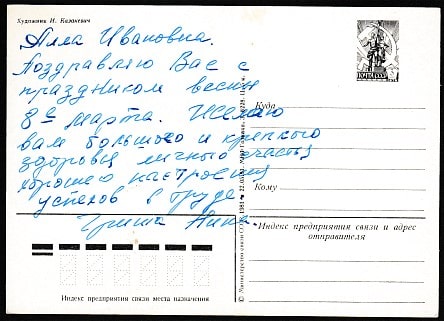 Художник И. Казакевич
Алла Ивановна.
Поздравляю Вас с
праздником весны
8ое марта. Желаю
вам большого и крепкого
здоровья личного счастья
хорошего настроения
успехов в труде
Гриша Анна.
ПОЧТА СССР
Куда
Кому
Индекс предприятия связи и адрес
отправителя
Индекс предприятия связи места назначения
© Министерство связи СССР, 1981